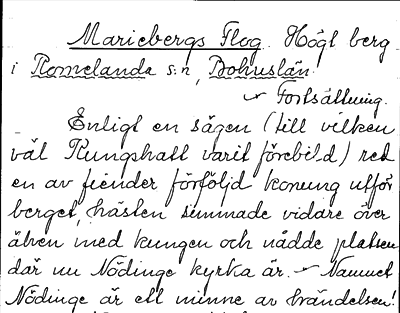 Mariebergs Flog. Högt berg
i Romelanda s:n, Bohuslän.
Fortsättning.
Enligt en sägen (till vilken
väl Kungshatt varit förebild) red
en av fiender förföljd konung utför
berget, hästen simmade vidare över
älven med kungen och nådde platsen
där nu Nödinge kyrka är. - Namnet
Nödinge är ett minne av händelsen!